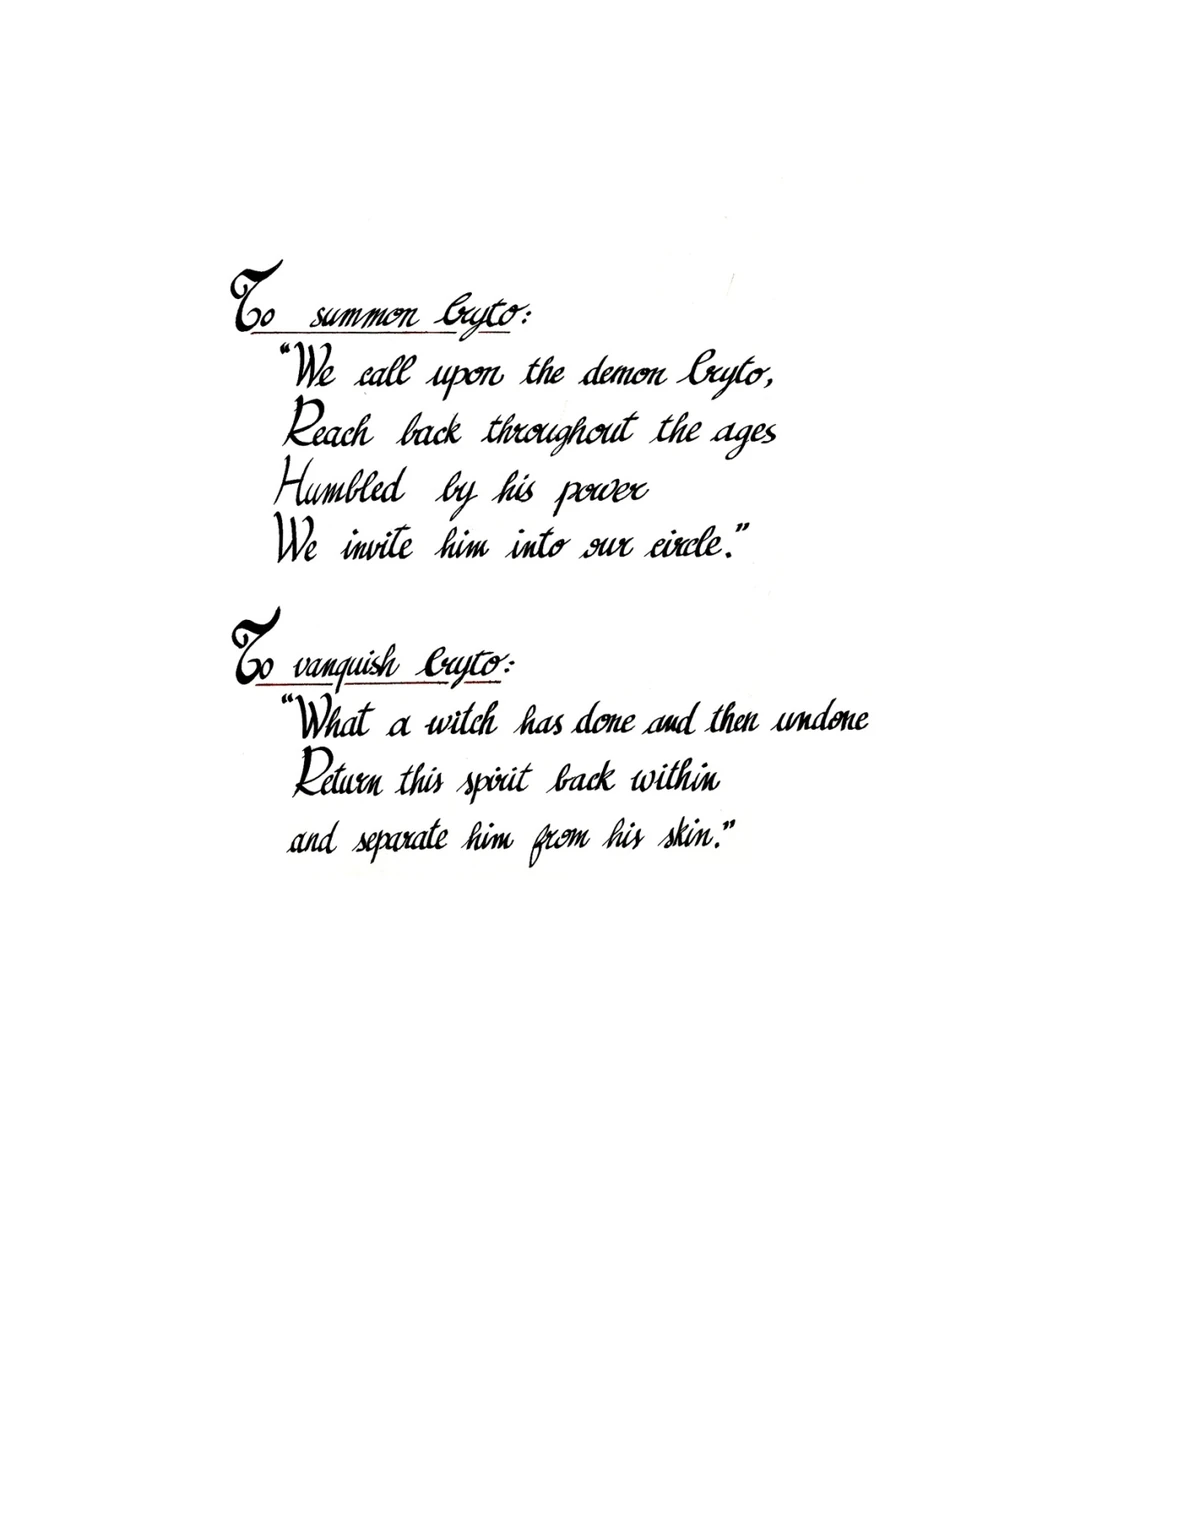 To summon Cryto:
"We call upon the demon Cryto,
Reach back throughout the ages
Humbled by his power
We invite him into our circle."
To vanquish Cryto:
"What a witch has done and then undone
Return this spirit back within
and separate him from his skin."